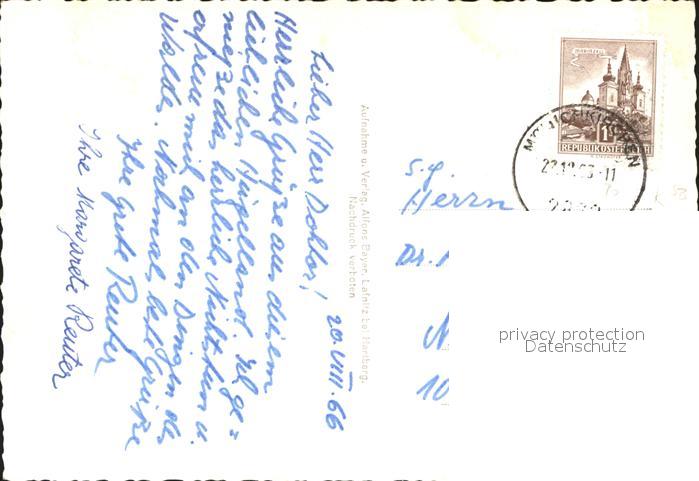 Lieber Herr Doktor! 20.VIII.66
Herrliche Grüße aus diesem
lieblichen Hügelland. Ich ge=
nieße das herrliche Nichtstun u.
erfreue mich an den Dingen des
Waldes. Nochmals beste Grüße
Ihre Grete Reuter
Ihre Margarete Reuter
Aufnahme u. Verlag: Alfons Bayer, Lafnitz bei Hartberg.
Nachdruck verboten
MARIAZELL
1
REPUBLIK ÖSTERREICH
S.g.
Herrn
Dr.
N
10
privacy protection
Datenschutz